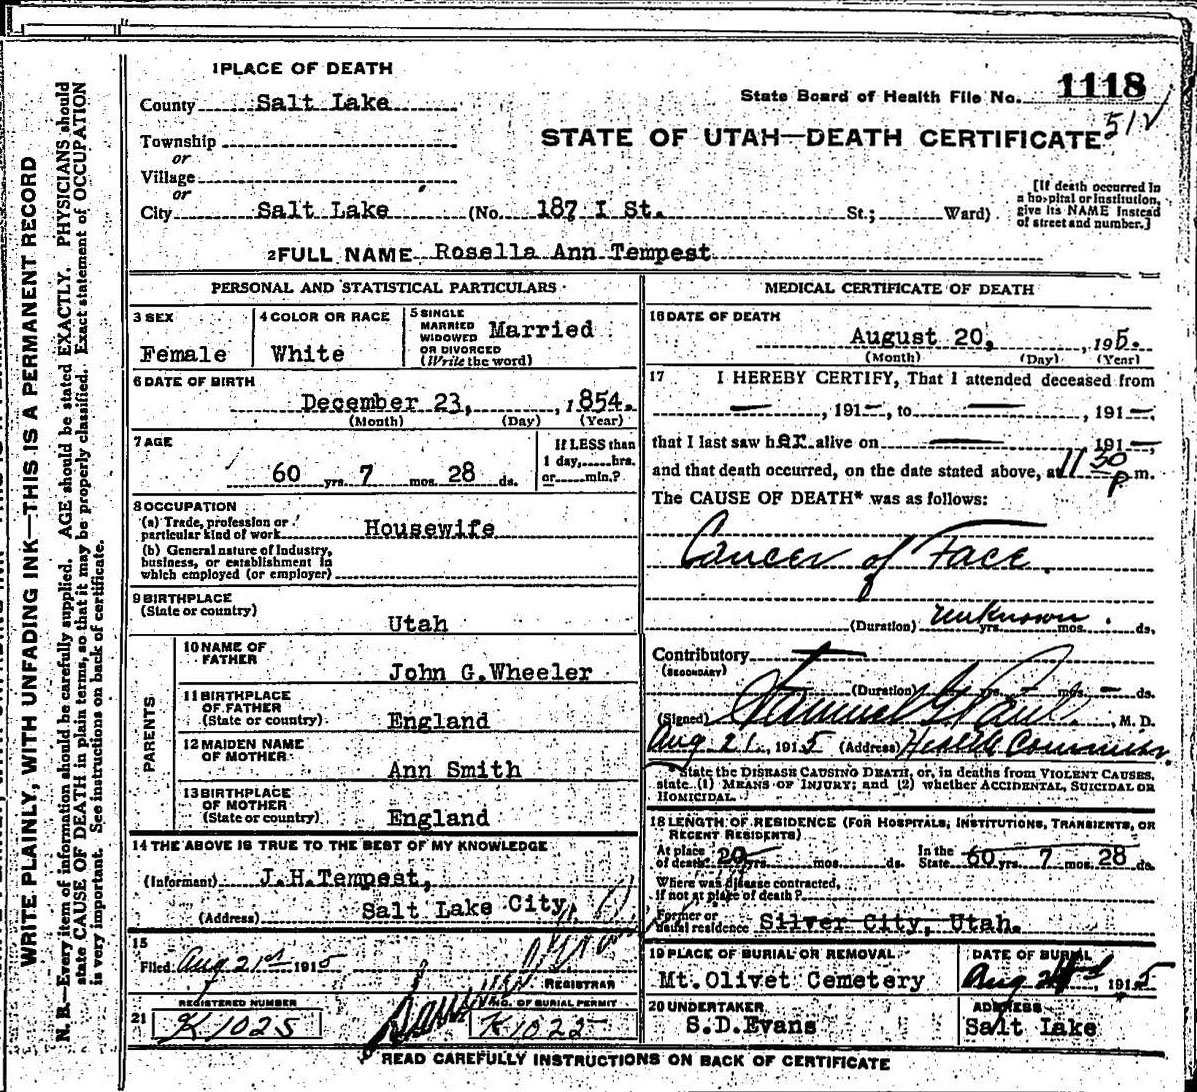 1 PLACE OF DEATH
County Salt Lake
State Board of Health File No. 1118
51 ✓
STATE OF UTAH—DEATH CERTIFICATE
Township
or
Village
or
City Salt Lake (No. 187 I St. St.; Ward)
[If death occurred in
a hospital or institution,
give its NAME instead
of street and number.]
2 FULL NAME Rosella Ann Tempest
PERSONAL AND STATISTICAL PARTICULARS
3 SEX
Female
4 COLOR OR RACE
White
5 SINGLE
MARRIED
WIDOWED
OR DIVORCED
(Write the word)
Married
6 DATE OF BIRTH
December 23, , 1854.
(Month) (Day) (Year)
7 AGE
60 yrs. 7 mos. 28 ds.
If LESS than
1 day,......hrs.
or......min.?
8 OCCUPATION
(a) Trade, profession or
particular kind of work Housewife
(b) General nature of Industry,
business, or establishment in
which employed (or employer)
9 BIRTHPLACE
(State or country)
Utah
PARENTS
10 NAME OF
FATHER
John G.Wheeler
11 BIRTHPLACE
OF FATHER
(State or country)
England
12 MAIDEN NAME
OF MOTHER
Ann Smith
13 BIRTHPLACE
OF MOTHER
(State or country)
England
14 THE ABOVE IS TRUE TO THE BEST OF MY KNOWLEDGE
(Informant) J.H.Tempest,
(Address) Salt Lake City,
15
Filed Aug 21st 1915
REGISTRAR
REGISTERED NUMBER
21 K 1025
NO. OF BURIAL PERMIT
K 1022
MEDICAL CERTIFICATE OF DEATH
16 DATE OF DEATH
August 20, , 195.
(Month) (Day) (Year)
17 I HEREBY CERTIFY, That I attended deceased from
— , 191—, to — , 191—,
that I last saw her alive on — 191—
and that death occurred, on the date stated above, at 11 30 P m.
The CAUSE OF DEATH* was as follows:
Cancer of Face.
(Duration) unknown. yrs. mos. ds.
Contributory —
(SECONDARY)
(Duration) — yrs. — mos. — ds.
(Signed) Samuel G Paul. , M. D.
Aug 21., 1915 (Address) Health Commiss.
*State the DISEASE CAUSING DEATH, or, in deaths from VIOLENT CAUSES,
state (1) MEANS OF INJURY; and (2) whether ACCIDENTAL, SUICIDAL OR
HOMICIDAL.
18 LENGTH OF RESIDENCE (FOR HOSPITALS, INSTITUTIONS, TRANSIENTS, OR
RECENT RESIDENTS)
At place
of death 20 yrs. mos. ds. In the
State 60 yrs. 7 mos. 28 ds.
Where was disease contracted,
if not at place of death?
Former or
usual residence Silver City, Utah.
19 PLACE OF BURIAL OR REMOVAL
Mt.Olivet Cemetery
DATE OF BURIAL
Aug , 1915
20 UNDERTAKER
S.D.Evans
ADDRESS
Salt Lake
READ CAREFULLY INSTRUCTIONS ON BACK OF CERTIFICATE
WRITE PLAINLY, WITH UNFADING INK—THIS IS A PERMANENT RECORD
N. B.—Every item of information should be carefully supplied. AGE should be stated EXACTLY. PHYSICIANS should
state CAUSE OF DEATH in plain terms, so that it may be properly classified. Exact statement of OCCUPATION
is very important. See instructions on back of certificate.